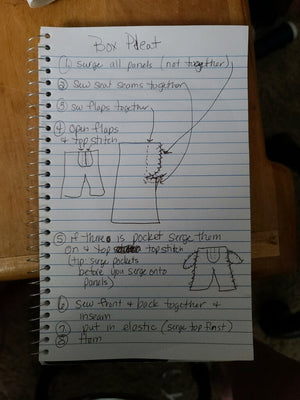 Box Pleat
① surge all panels (not together)
② Sew seat seams together
③ sew flaps together
④ Open flaps
& top stitch
⑤ if there is pocket serge them
on & top stitch
(tip: surge pockets
before you surge onto
panels)
⑥ Sew front & back together &
inseam
⑦ put in elastic (surge top first)
⑧ Hem